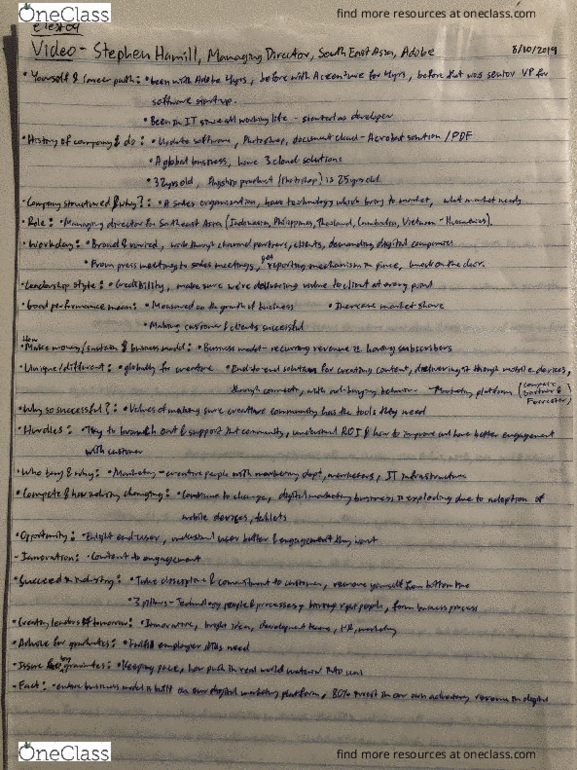 OneClass
find more resources at oneclass.com
Video - Stephen Hamill, Managing Director, South East Asia, Adobe 8/10/2019
• Yourself & career path: • been with Adobe 4yrs, before with Accenture for 4yrs, before that was senior VP for
software startup.
• Been in IT since all working life - started as developer
• History of company & do: • Update software, Photoshop, document cloud - Acrobat solution / PDF
• A global business, have 3 cloud solutions
• 32yrs old, Flagship product (Photoshop) is 25yrs old
• Company structured & why?: • A sales organisation, have technology which bring to market, what market needs
• Role: • Managing director for Southeast Asia (Indonesia, Philippines, Thailand, Cambodia, Vietnam
• Workday: • Broad & varied, work through channel partners, clients, demanding digital
• From press meetings to sales meetings, get reporting mechanism in place, knock on the door.
• Leadership style: • Credibility, make sure we're delivering value to client at every point
• Good performance mean: • Measured on the growth of business • Increase market share
• Making customer/clients successful
• How Make money/sustain & business model: • Business model - recurring revenue is having subscribers
• Unique/different: • globally for creative • End to end solution for creating content, delivering it through mobile devices,
through connects, with buying behaviour - Marketing platform (compare Gartner & Forrester)
• Why so successful?: • Values of making sure creative community has the tools they need
• Hurdles: • Try to branch out & support that community, understand ROI & how to improve and have better engagement
with customer
• Who buy & why: • Marketing - creative people with marketing dept, marketers, IT infrastructure
• Compete & how industry changing: • Continue to change, digital marketing business is exploding due to adoption of
mobile devices, tablets
• Opportunity: • end user, understand user better & engagement they want
- Innovation: • Content to engagement
• Succeed in industry: • Take discipline & commitment to customer, remove yourself from bottom line
• 3 pillars - Technology people & processes, having right people, form business process
• Creating leaders of tomorrow: • Innovative, bright ideas, development teams, HR, marketing
• Advice for graduates: • Fulfil employer needs
• Issue by graduates: • Keeping pace, how push in real world
• Fact: • entire business model is built on our digital marketing platform, 80% invest in our own revenue in digital
OneClass
find more resources at oneclass.com